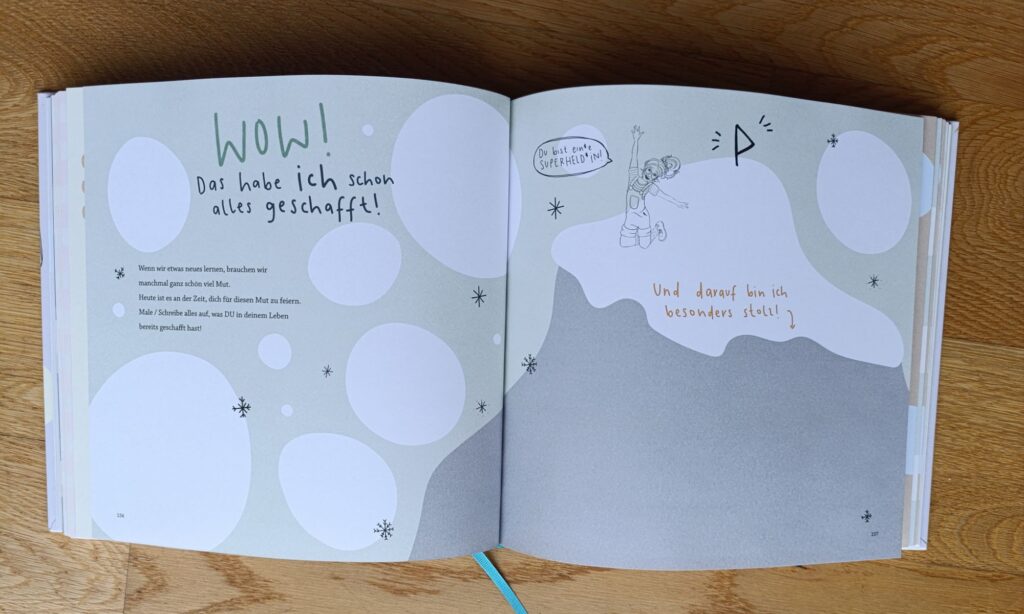 WOW!
Das habe ich schon
alles geschafft!
Wenn wir etwas neues lernen, brauchen wir
manchmal ganz schön viel Mut.
Heute ist es an der Zeit, dich für diesen Mut zu feiern.
Male / Schreibe alles auf, was DU in deinem Leben
bereits geschafft hast!
Du bist ein*e
SUPERHELD*IN!
Und darauf bin ich
besonders stolz!